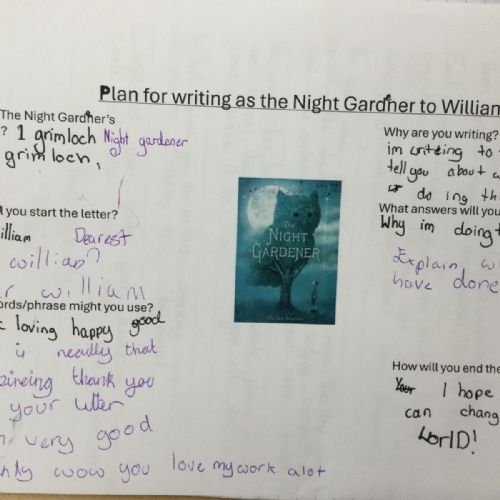 Plan for writing as the Night Gardner to William
The Night Gardner's
? 1 grimloch Night gardener
grimloch,
you start the letter?
William Dearest
william?
william
words/phrase might you use?
loving happy good
is that
thank you
your
very good
wow you love my work alot
The
NIGHT
GARDENER
Why are you writing?
im writeing to
tell you about
do ing
What answers will you
Why im doing
Explain
have done
How will you end the
I hope
can
WorlD!